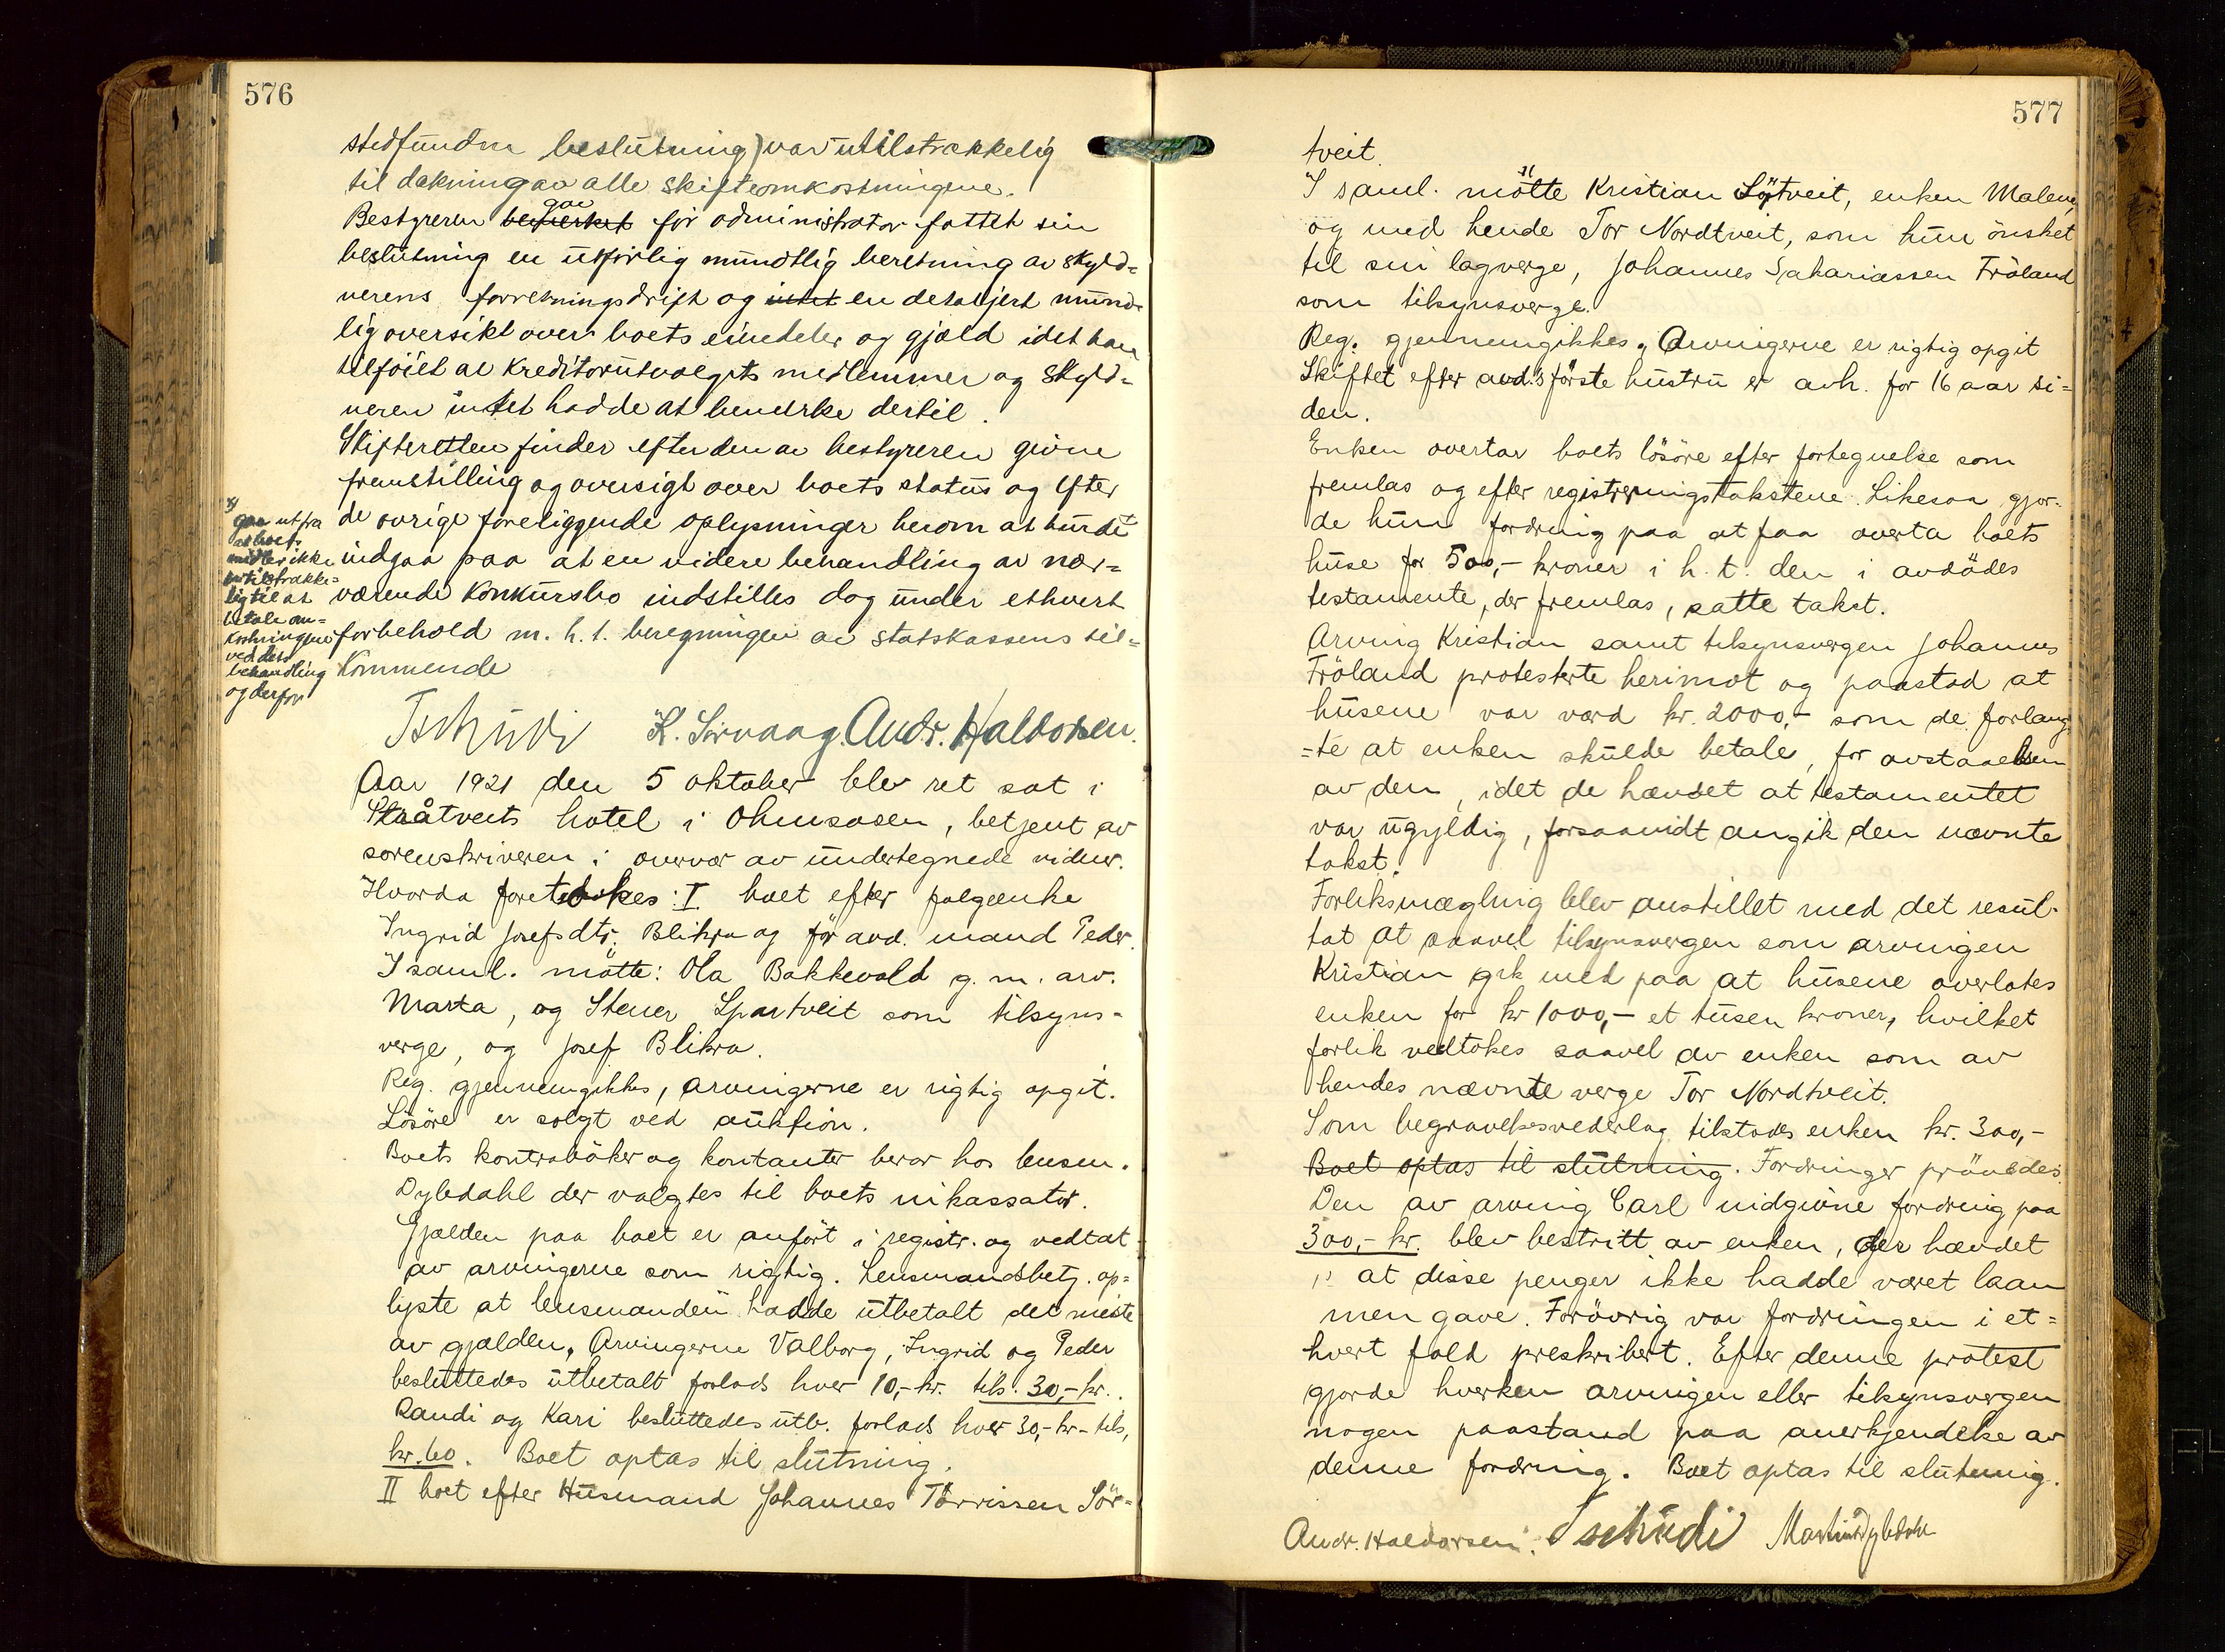 576
stedfundne beslutning) var utilstrækkelig
til dækning av alle skifteomkostningene.
Bestyreren bemerket gav før administrator fattet sin
beslutning en utførlig mundtlig beretning av skyld=
nerens forretningsdrift og intet en detaljert mund-
lig oversikt over boets eiendeler og gjæld idet han
tilføiet at kreditorutvalgets medlemmer og skyld=
neren intet hadde at bemerke dertil.
Skifteretten finder efter den av bestyreren givne
fremstilling og oversigt over boets status og efter
de øvrige foreliggende oplysninger herom at burde x)
indgaa paa at en videre behandling av nær=
værende konkursbo indstilles dog under ethvert
forbehold m. h. t. beregningen av statskassens til=
kommende
x)
gaa ut fra
at boets
midler ikke
er tilstrække=
lig til at
betale om=
kostningene
ved dets
behandling
og derfor
Tschudi K. Sirvaag. Andr. Haldorsen.
Aar 1921 den 5 oktober blev ret sat i
Straatveits hotel i Ølensosen, betjent av
sorenskriveren i overvær av undertegnede vidner.
Hvorda foretokes: I boet efter folgeenke
Ingrid Josefsdtr. Blikra og før avd. mand Peder.
I saml. møtte: Ola Bakkevold g. m. arv.
Marta, og Stener Spartveit som tilsyns-
verge, og Josef Blikra.
Reg. gjennemgikkes, arvingerne er rigtig opgit.
Løsøre er solgt ved auktion.
Boets kontrabøker og kontanter beror hos lensm.
Dybdahl der valgtes til boets inkassator.
Gjælden paa boet er anført i registr. og vedtat
av arvingerne som rigtig. Lensmandsbetj. op=
lyste at lensmanden hadde utbetalt det meste
av gjælden. Arvingerne Valborg, Ingrid og Peder
besluttedes utbetalt forlods hver 10,- kr. tils. 30,- kr.
Randi og Kari besluttedes utb. forlods hver 30,- kr - tils.
kr. 60. Boet optas til slutning.
II boet efter Husmand Johannes Tørrissen Sør=
577
tveit.
I saml. møtte Kristian Sørtveit, enken Malene,
og med hende Tor Nordtveit, som hun ønsket
til sin lagverge, Johannes Sakariassen Frøland
som tilsynsverge.
Reg. gjennemgikkes. Arvingerne er rigtig opgit
Skiftet efter avd.s første hustru er avh. for 16 aar si=
den.
Enken overtar boets løsøre efter fortegnelse som
fremlas og efter registreringstakstene. Likesaa gjor-
de hun fordring paa at faa overta boets
huse for 500,- kroner i h. t. den i avdødes
testamente, der fremlas, satte takst.
Arving Kristian samt tilsynsvergen Johannes
Frøland protesterte herimot og paastod at
husene var værd kr. 2000,- som de forlang
=te at enken skulde betale, for avstaaelsen
av dem, idet de hævdet at testamentet
var ugyldig, forsaavidt angik den nævnte
takst.
Forliksmægling blev anstillet med det resul-
tat at saavel tilsynsvergen som arvingen
Kristian gik med paa at husene overlates
enken for kr 1000,- et tusen kroner, hvilket
forlik vedtokes saavel av enken som av
hendes nævnte verge Tor Nordtveit.
Som begravelsesvederlag tilstodes enken kr. 300,-
Boet optas til slutning. Fordringer prøvedes.
Den av arving Carl indgivne fordring paa
300,- kr. blev bestritt av enken, der hævdet
at disse penger ikke hadde været laan
men gave. Forøvrig var fordringen i et=
hvert fald preskribert. Efter denne protest
gjorde hverken arvingen eller tilsynsvergen
nogen paastand paa anerkjendelse av
denne fordring. Boet optas til slutning.
Andr. Haldorsen. Tschudi Martin Dybdahl